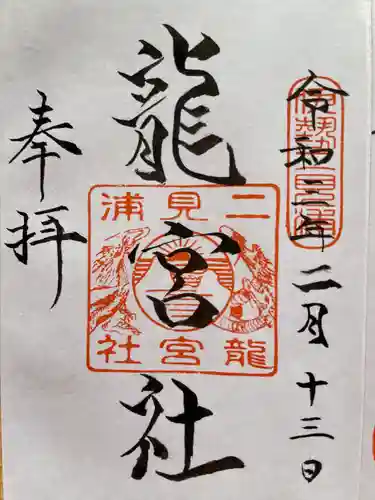 令和三年二月十三日
伊勢二見浦
龍宮社
二見浦
龍宮社
奉拝